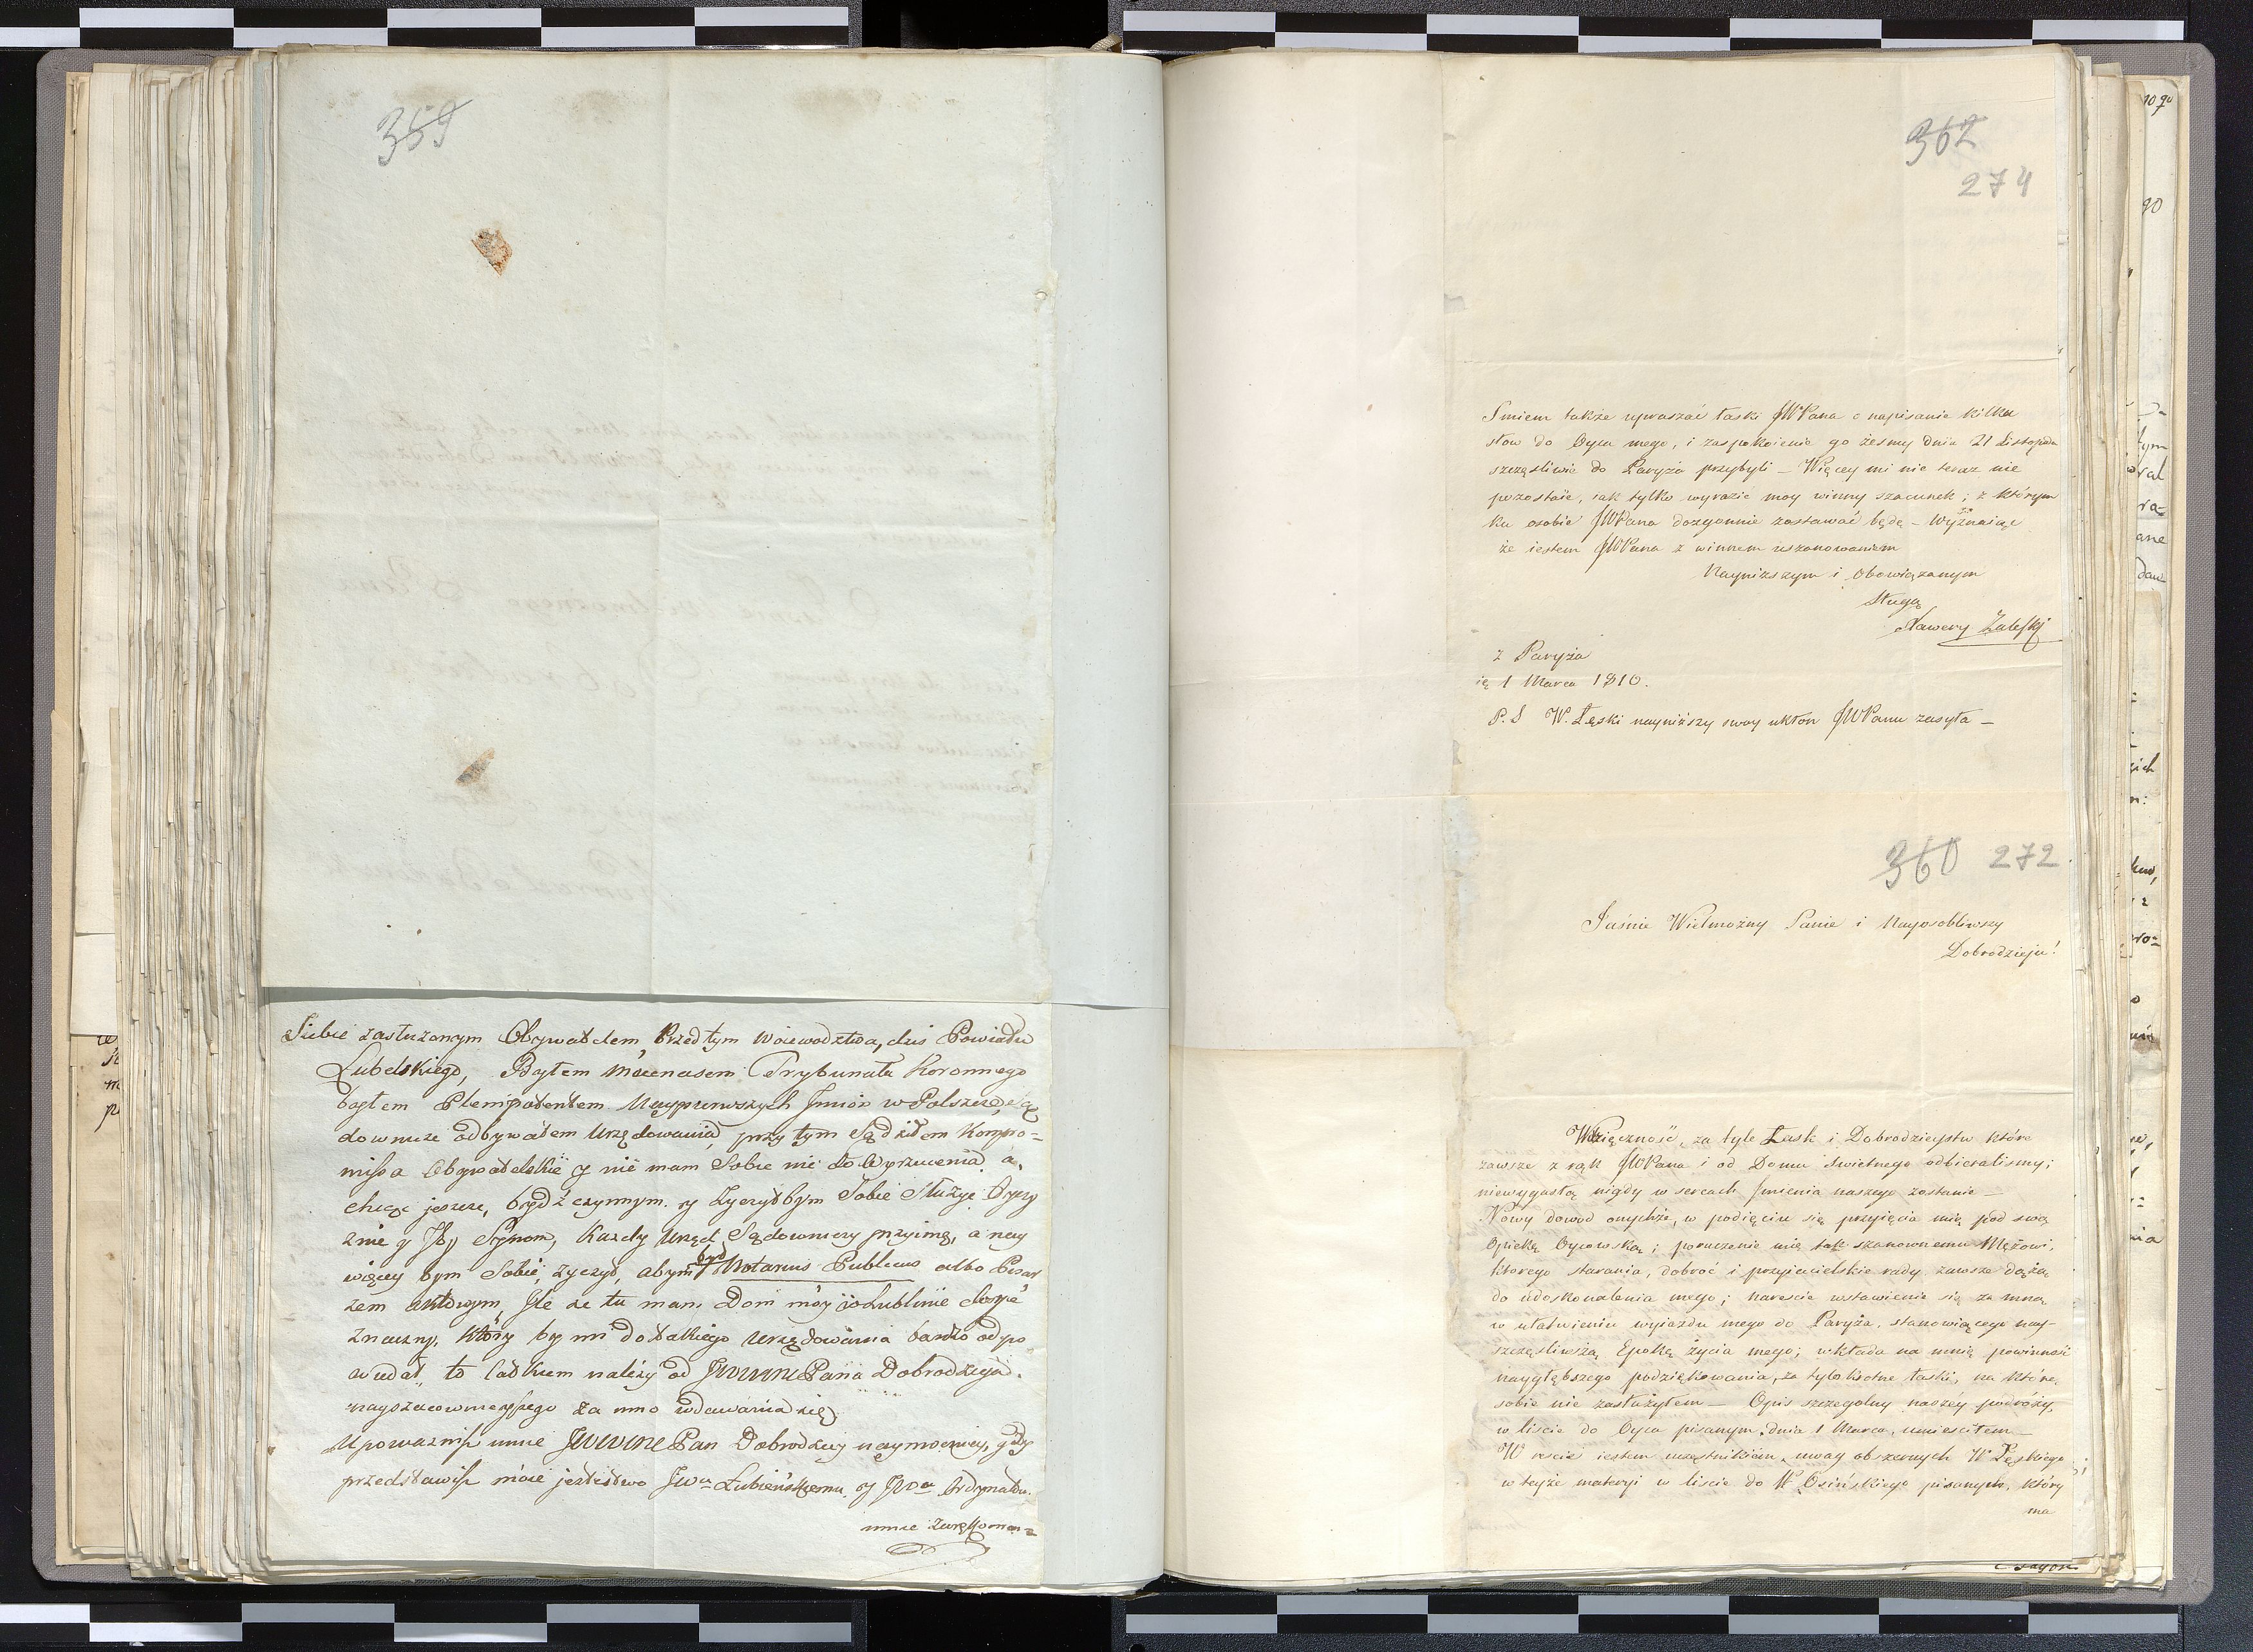 359
Siebie zasłużonym Obywatelem, Przed tym Woiewodztwa, dziś Powiatu
Lubelskiego, Byłem Mecenasem Trybunału Koronnego
byłem Plenipotentem Naypierwszych Imion w Polszcze, Są
downicze odbywałem Urzędowania, przy tym Sądziłem Kompo=
missa Obywatelskie y nie mam Sobie nic do Wyrzucenia, a
chcąc jeszcze, bydź czynnym. y Życzył bym Sobie Służyć Oyczy
znie y Jey Synom, Każdy Urząd Sądowniczy przyimę, a nay
więcey bym Sobie, życzył, abym był Notarius Publicus albo Pisar
zem aktowym, Ile że tu mam Dom móy w Lublinie dosyć
znaczny, który by mi do takiego Urzędowania bardzo odpo
wiedał, to całkiem należy od JWWMPana Dobrodzieja.
nayszacownieyszego za mno wdawania się
Upoważnisz mnie JWWMPan Dobrodziey naymocniey, gdy
przedstawisz moie jestestwo JWu Łubieńskiemu, y JWu Ordynatu.
mnie zarekomen=
362
274
Smiem także upraszać łaski JWPana o napisanie kilku
słow do Oyca mego, i zaspokoienie go żesmy dnia 21 Listopada
szczęsliwie do Paryża przybyli – Więcey mi nie teraz nie
pozostaie, iak tylko wyrazić moy winny szacunek; z którym
ku osobie JWPana dozgonnie zostawać będę – Wyznaiąc
że iestem JWPana z winnem uszanowaniem
Nayniższym i Obowiązanym
Sługą
Xawery Zaleski
z Paryża
1 Marca 1810.
P.S W. Łęski nayniższy swoy ukłon JWPanu zasyła –
360 272
Jaśnie Wielmożny Panie i Nayosobliwszy
Dobrodzieju!
Wdzięczność, za tyle Łask i Dobrodzieystw które
zawsze z rąk JWPana i od Domu Swietnego odbieralismy;
niewygasłą nigdy w sercach Imienia naszego zostanie –
Nowy dowod onychże, w podięciu się przyięcia mię pod swą
Opiekę Oycowską; i poruczenie mię tak szanownemu Mężowi,
ktorego starania, dobroć i przyiacielskie rady zawsze dążą
do udoskonalenia mego; nareście wstawienie się za mną
w ułatwieniu wyiazdu mego do Paryża, stanowiącego nay-
szczęsliwszą Epokę życia mego; wkłada na mnię powinność
naygłębszego podziękowania, za tylokrotne łaski, na które
sobie nie zasłużyłem – Opis szczegolny naszéy podróży,
w liscie do Oyca pisanym, dnia 1 Marca, umiesciłem –
W rescie iestem uczęstnikiem, uwag obszernych W Łęskiego
w teyże materyi w liscie do W Osińskiego pisanym, który
ma